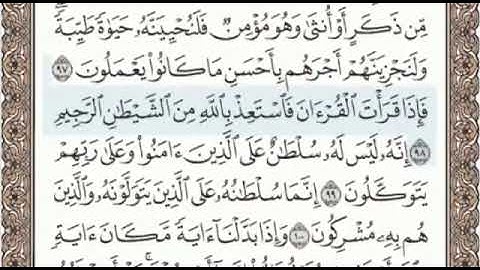 مِّن ذَكَرٍ أَوْ أُنثَىٰ وَهُوَ مُؤْمِنٌ فَلَنُحْيِيَنَّهُۥ حَيَوٰةً طَيِّبَةً ۖ
وَلَنَجْزِيَنَّهُمْ أَجْرَهُم بِأَحْسَنِ مَا كَانُوا۟ يَعْمَلُونَ ٩٧
فَإِذَا قَرَأْتَ الْقُرْءَانَ فَاسْتَعِذْ بِاللَّهِ مِنَ الشَّيْطَٰنِ الرَّجِيمِ
٩٨ إِنَّهُۥ لَيْسَ لَهُۥ سُلْطَٰنٌ عَلَى الَّذِينَ ءَامَنُوا۟ وَعَلَىٰ رَبِّهِمْ
يَتَوَكَّلُونَ ٩٩ إِنَّمَا سُلْطَٰنُهُۥ عَلَى الَّذِينَ يَتَوَلَّوْنَهُۥ وَالَّذِينَ
هُم بِهِۦ مُشْرِكُونَ ١٠٠ وَإِذَا بَدَّلْنَآ ءَايَةً مَّكَانَ ءَايَةٍ ۙ